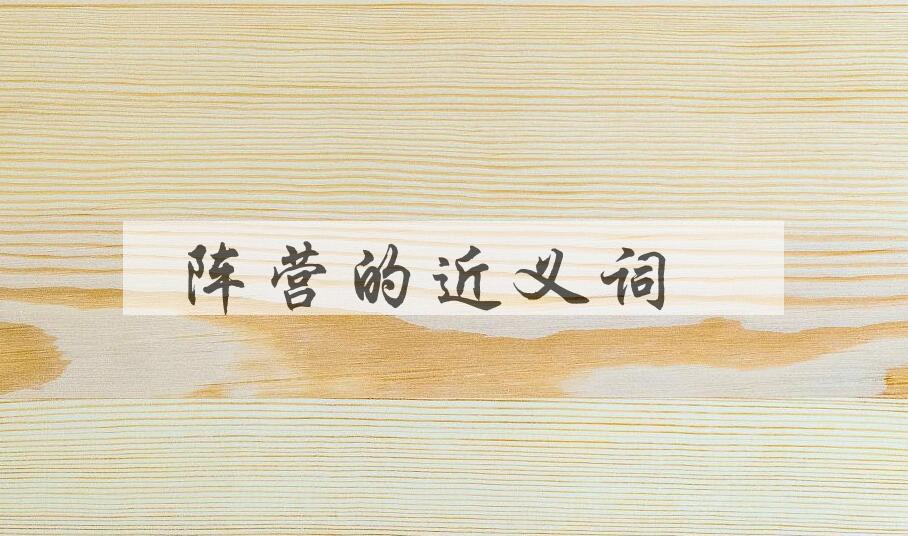 阵营的近义词